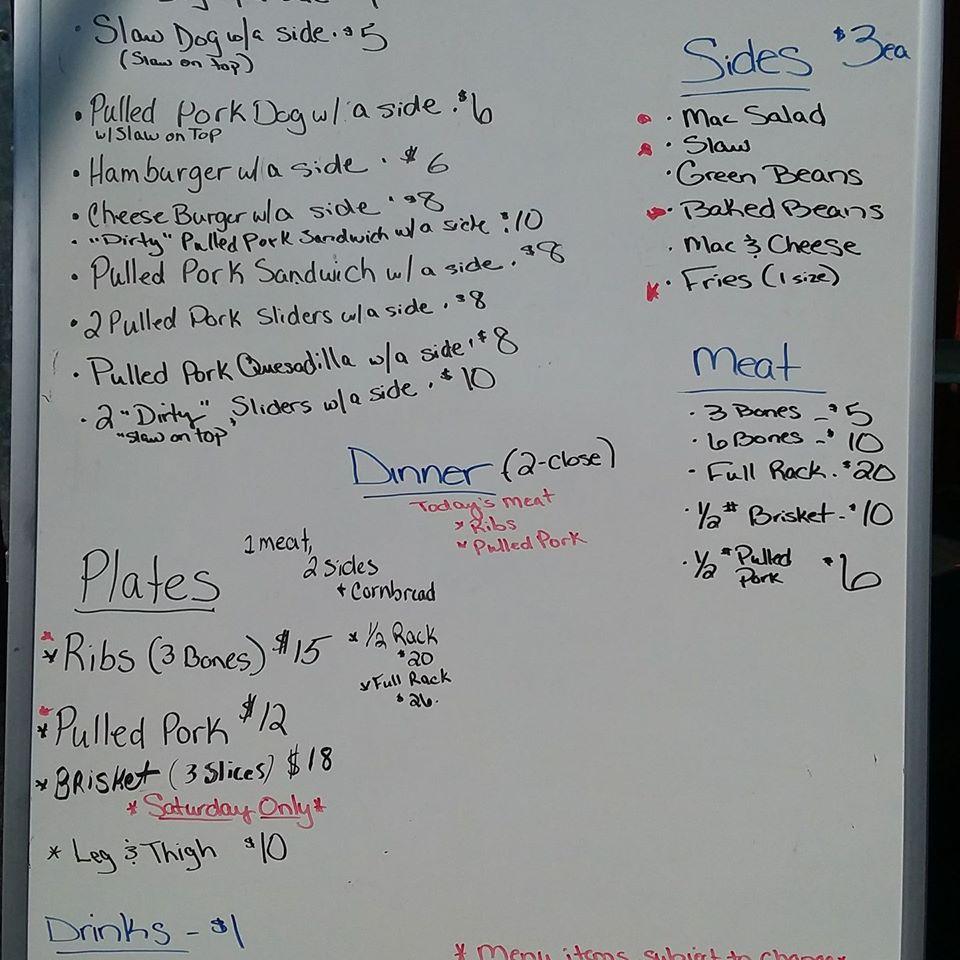 • Slaw Dog w/a side. $5
(Slaw on top)
• Pulled Pork Dog w/ a side. $6
w/Slaw on Top
• Hamburger w/a side. $6
• Cheese Burger w/a side. $8
• "Dirty" Pulled Pork Sandwich w/a side $10
• Pulled Pork Sandwich w/ a side. $8
• 2 Pulled Pork Sliders w/a side. $8
• Pulled Pork Quesadilla w/a side. $8
• 2 "Dirty" Sliders w/a side. $10
"slaw on top"
Sides $3ea
• Mac Salad
• Slaw
• Green Beans
• Baked Beans
• Mac & Cheese
• Fries (1 size)
Meat
• 3 Bones - $5
• 6 Bones - $10
• Full Rack. $20
• 1/2 # Brisket - $10
• 1/2 # Pulled Pork $6
Dinner (2-close)
Today's meat
* Ribs
* Pulled Pork
Plates
1 meat,
2 sides
+ Cornbread
* Ribs (3 Bones) $15
* 1/2 Rack
$20
* Full Rack
$26.
* Pulled Pork $12
* BRisket (3 Slices) $18
* Saturday Only *
* Leg & Thigh $10
Drinks - $1
* Menu items subject to change*